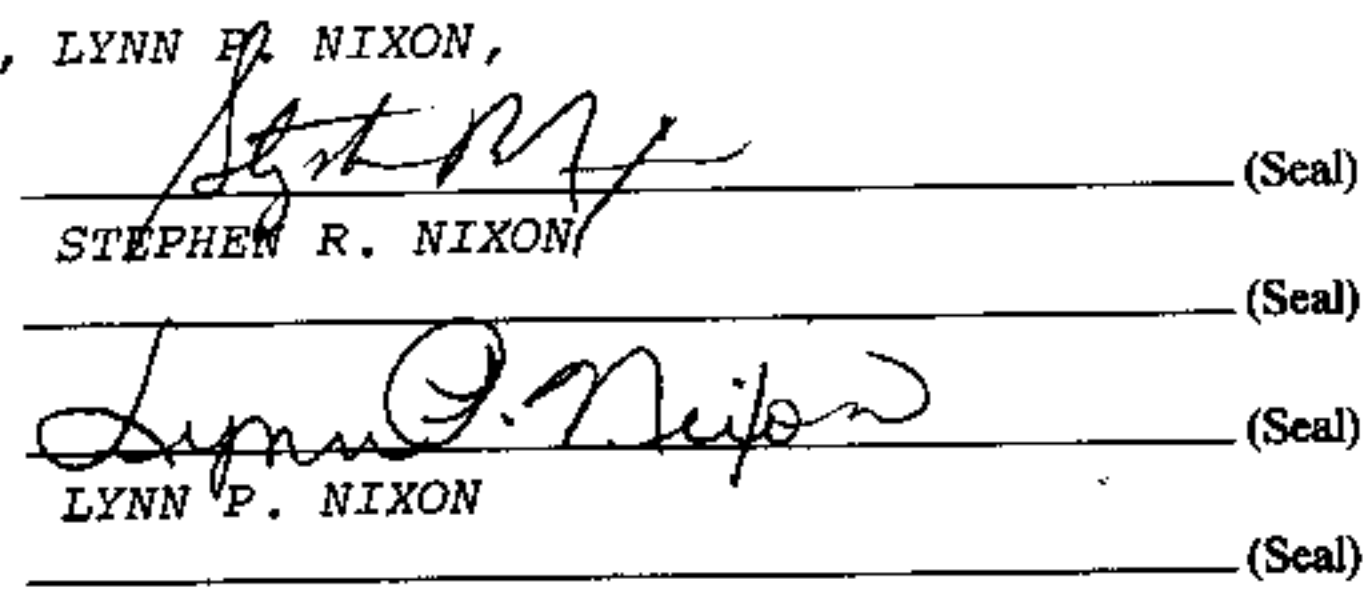 , LYNN P. NIXON,
Stephen R Nix (Seal)
STEPHEN R. NIXON
(Seal)
Lynn P. Nixon (Seal)
LYNN P. NIXON
(Seal)